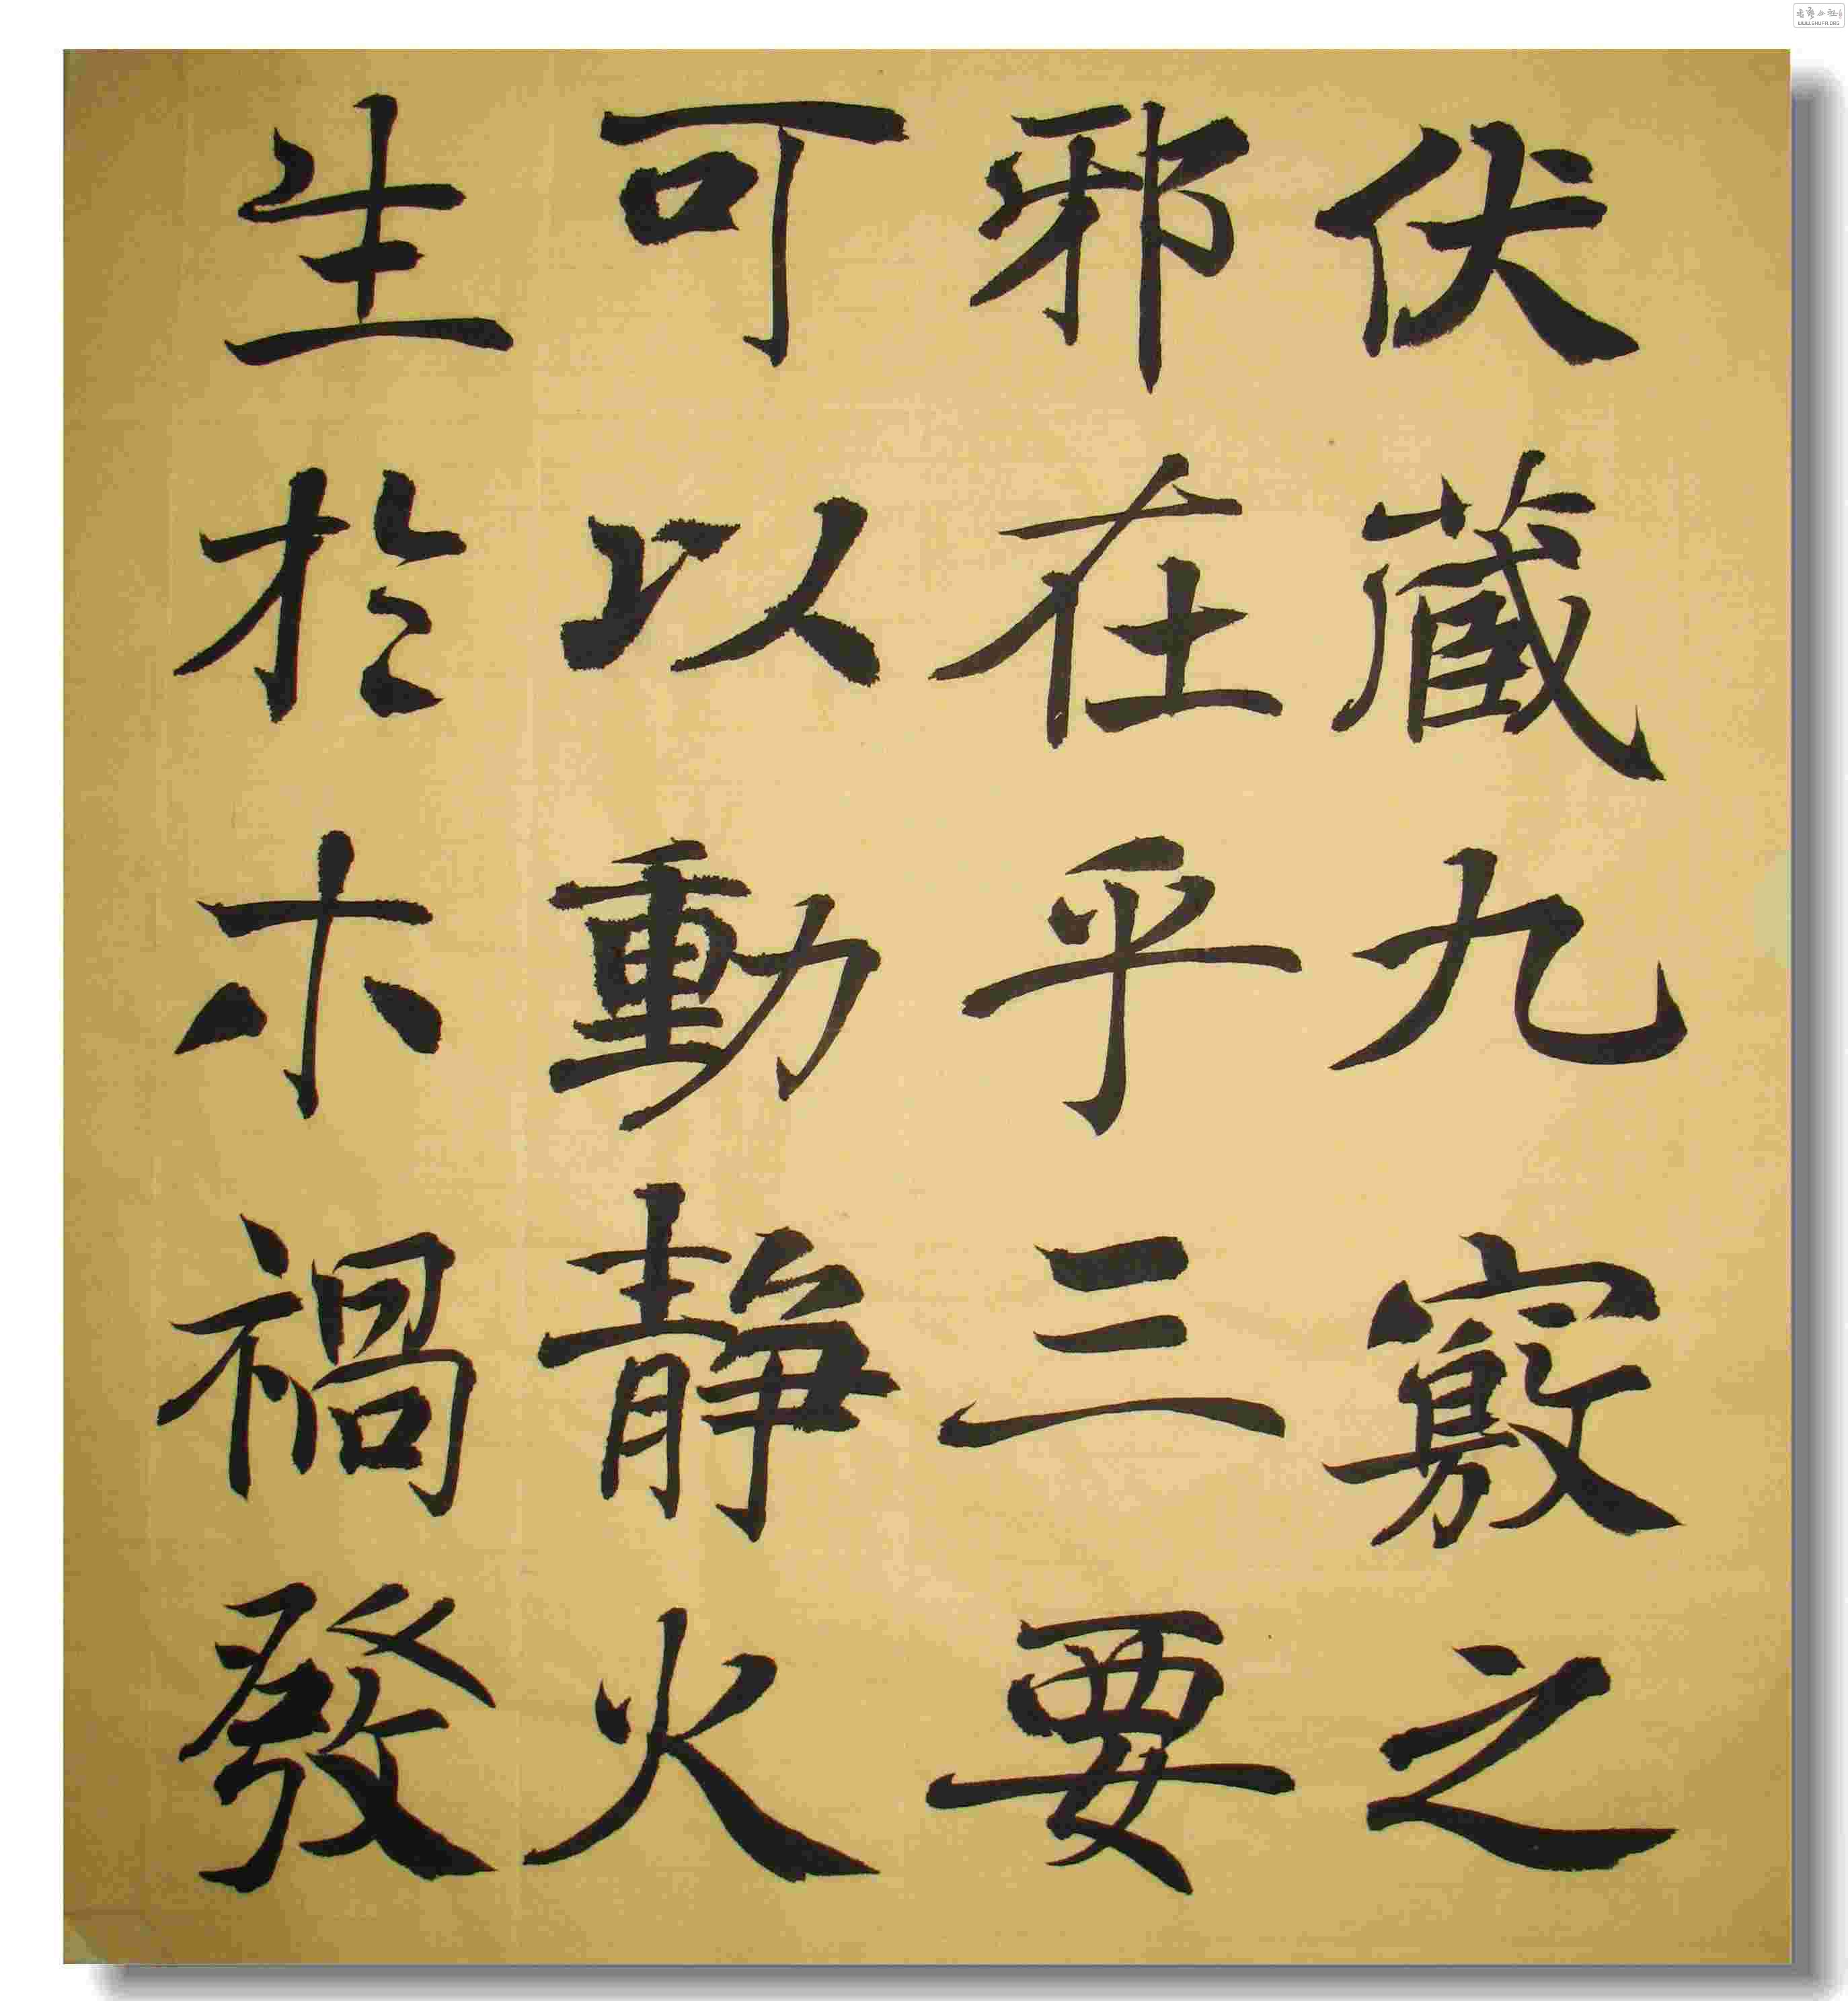 伏藏九竅之
邪在乎三要
可以動静火
生於木禍發
WWW.SHUFA.ORG